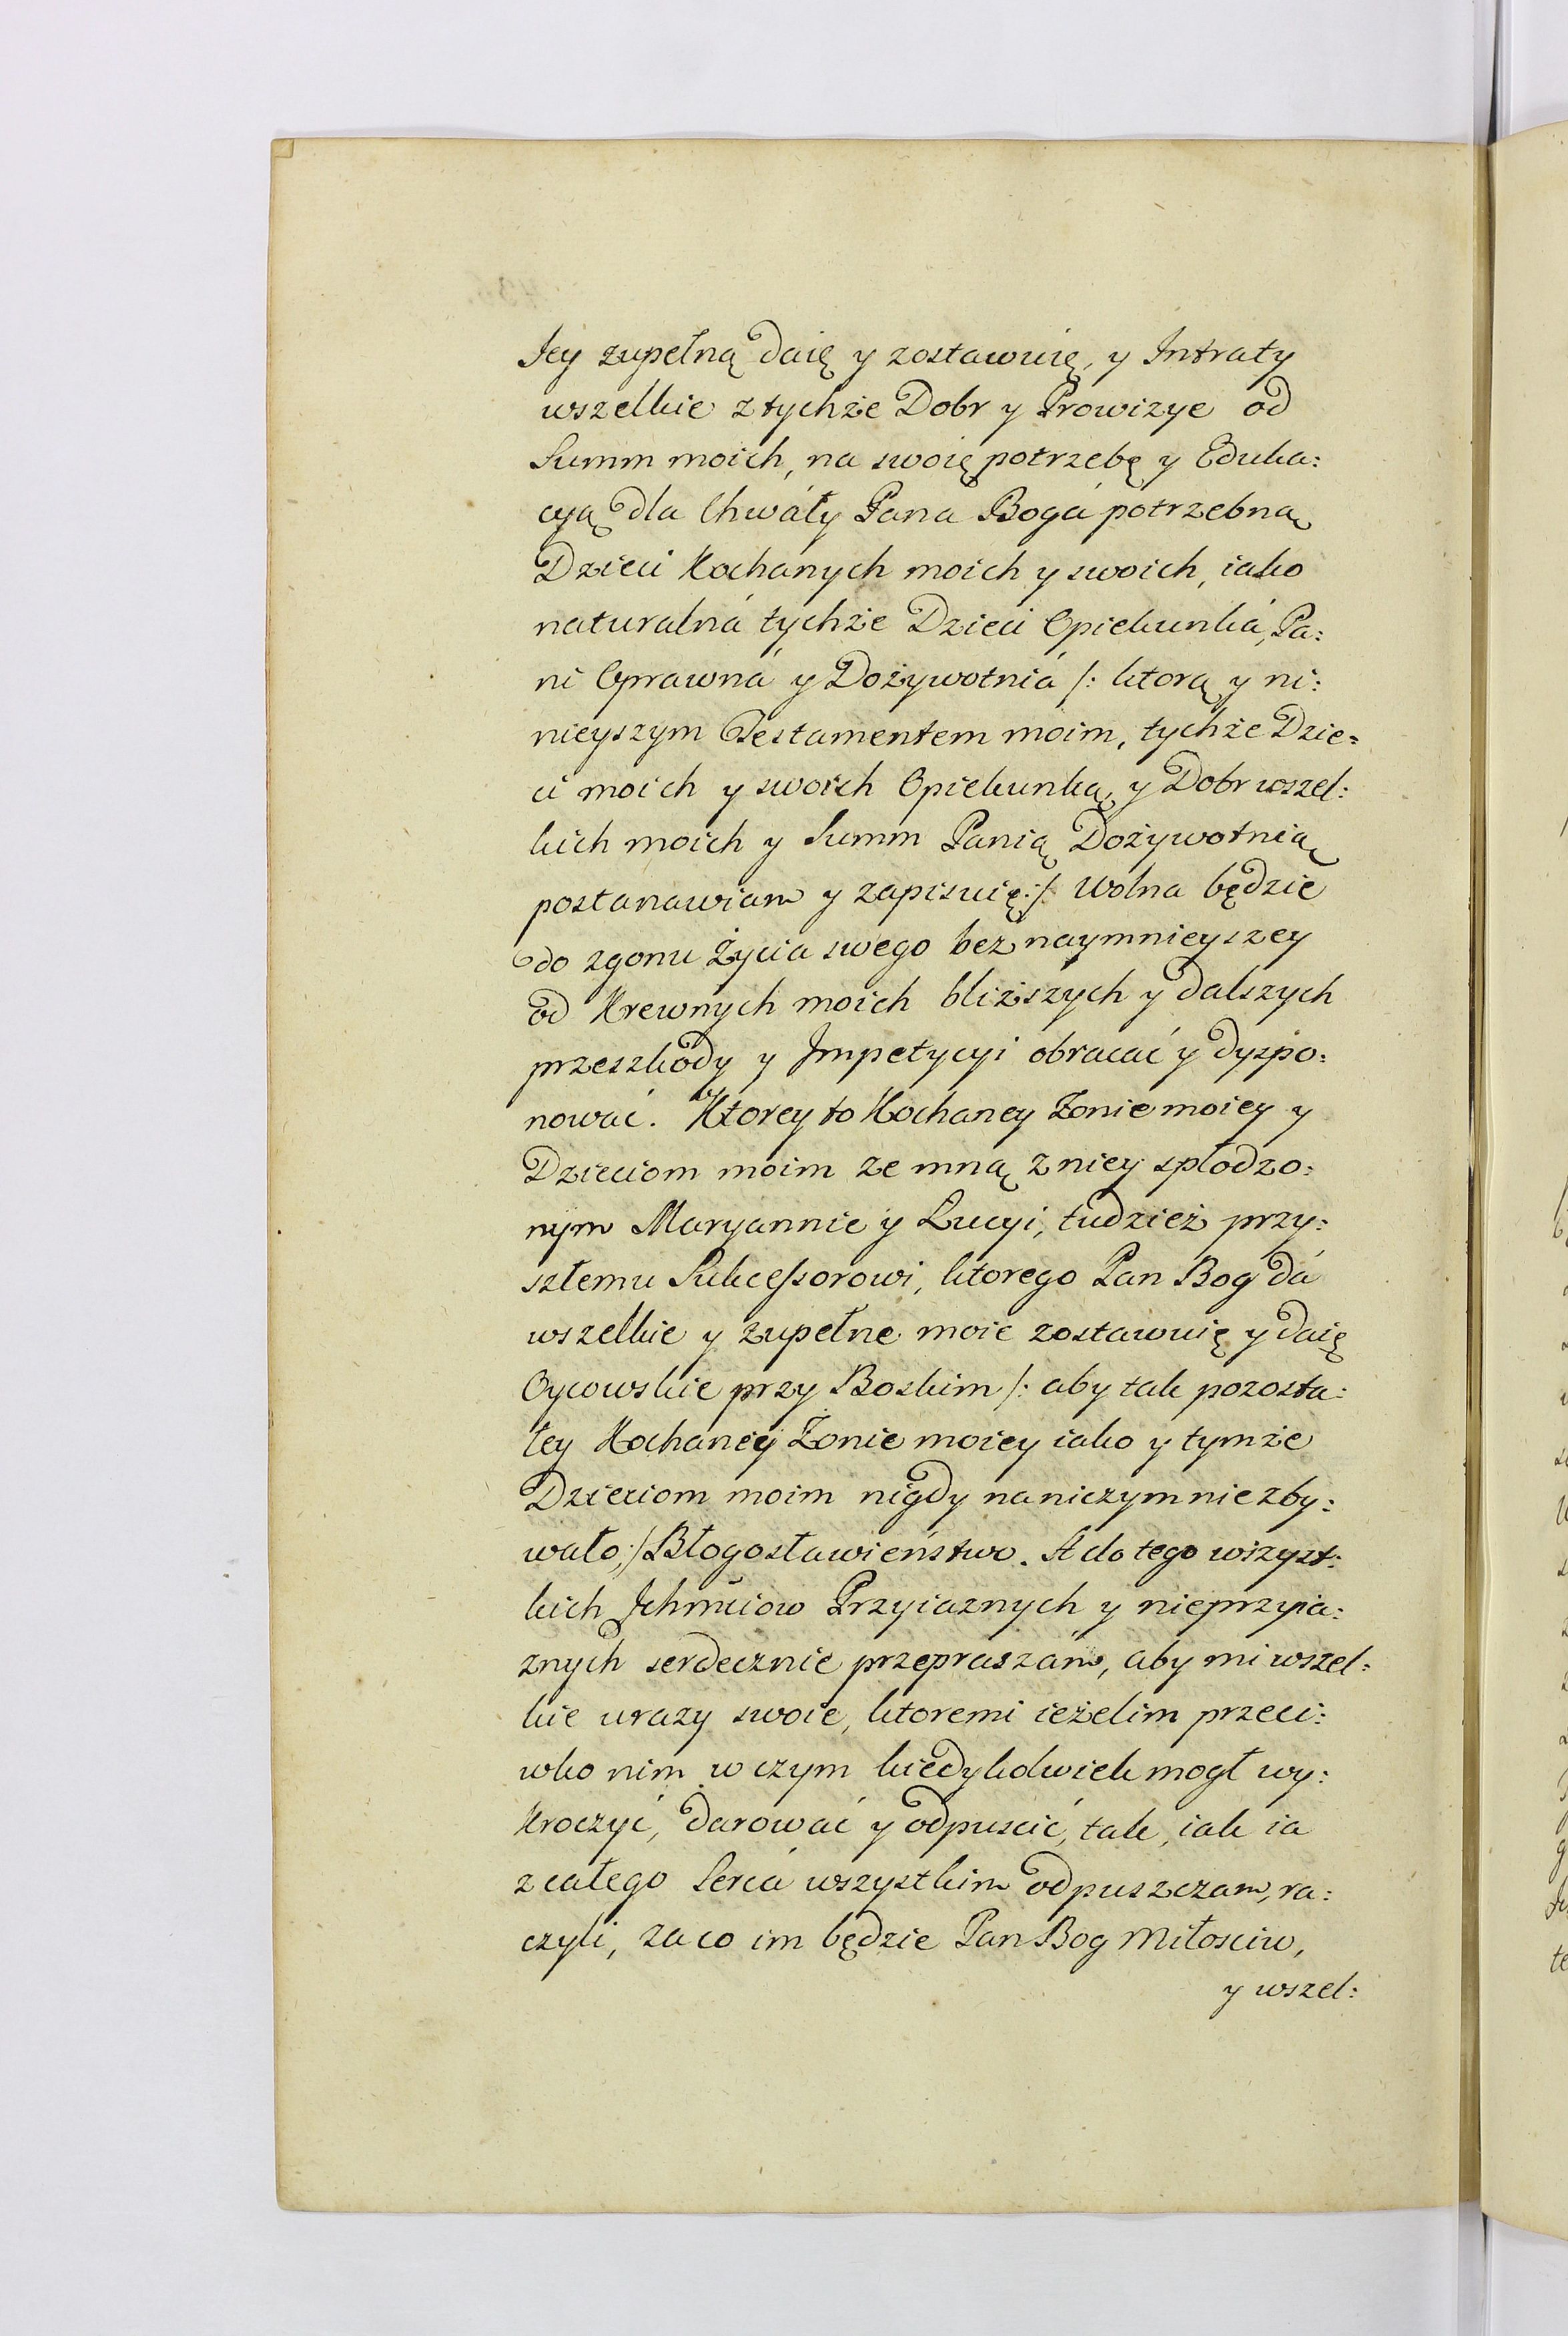 Jey zupełną daię y zostawuię, y Intraty
wszelkie z tychże Dobr y Prowizye od
Summ moich, na swoię potrzebę y Eduka:
cyą dla Chwáły Pana Bogá potrzebną
Dzieci Kochanych moich y swoich, iako
naturalná tychże Dzieci Opiekunká, Pa:
ni Oprawná y Dożywotniá /: ktorą y ni:
nieyszym Testamentem moim, tychże Dzie:
ci moich y swoich Opiekunką, y Dobr wszel:
kich moich y Summ Panią Dożywotnią
postanawiam y zapisuię :/ Wolna będzie
do zgonu Życia swego bez naymnieyszey
od Krewnych moich bliższych y dalszych
przeszkody y Impetycyi obracać y dyspo:
nować. Ktorey to Kochaney Żonie moiey y
Dzieciom moim ze mną z niey spłodzo:
nym Maryannie y Lucyi, tudzież przy:
szłemu Sukcessorowi, ktorego Pan Bog dá
wszelkie y zupełne moie zostawuię y daię
Oycowskie przy Boskim /: aby tak pozosta:
łey Kochaney Żonie moiey iako y tymże
Dzieciom moim nigdy na niczym nie zby:
wało :/ Błogosławieństwo. A do tego wszyst:
kich Ichmciow Przyiaznych y nieprzyia:
znych serdecznie przepraszám, aby mi wszel:
kie urazy swoie, ktoremi ieżelim przeci:
wko nim w czym kiedykolwiek mogł wy:
kroczyć, darować y odpuscić, tak, iak ia
z całego Sercá wszystkim odpuszczam, ra:
czyli, za co im będzie Pan Bog Miłosciw,
y wszel: